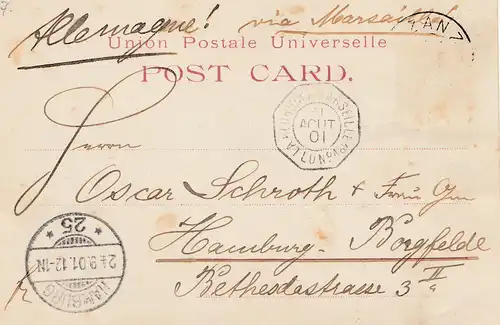 Allemagne! via Marseille!
Union Postale Universelle
POST CARD.
AOUT
01
Herrn
Oscar Schroth + Frau
Hamburg-Borgfelde
Bethesdastrasse 3 II
HAMBURG
24.9.01.12-1N
* 25 *